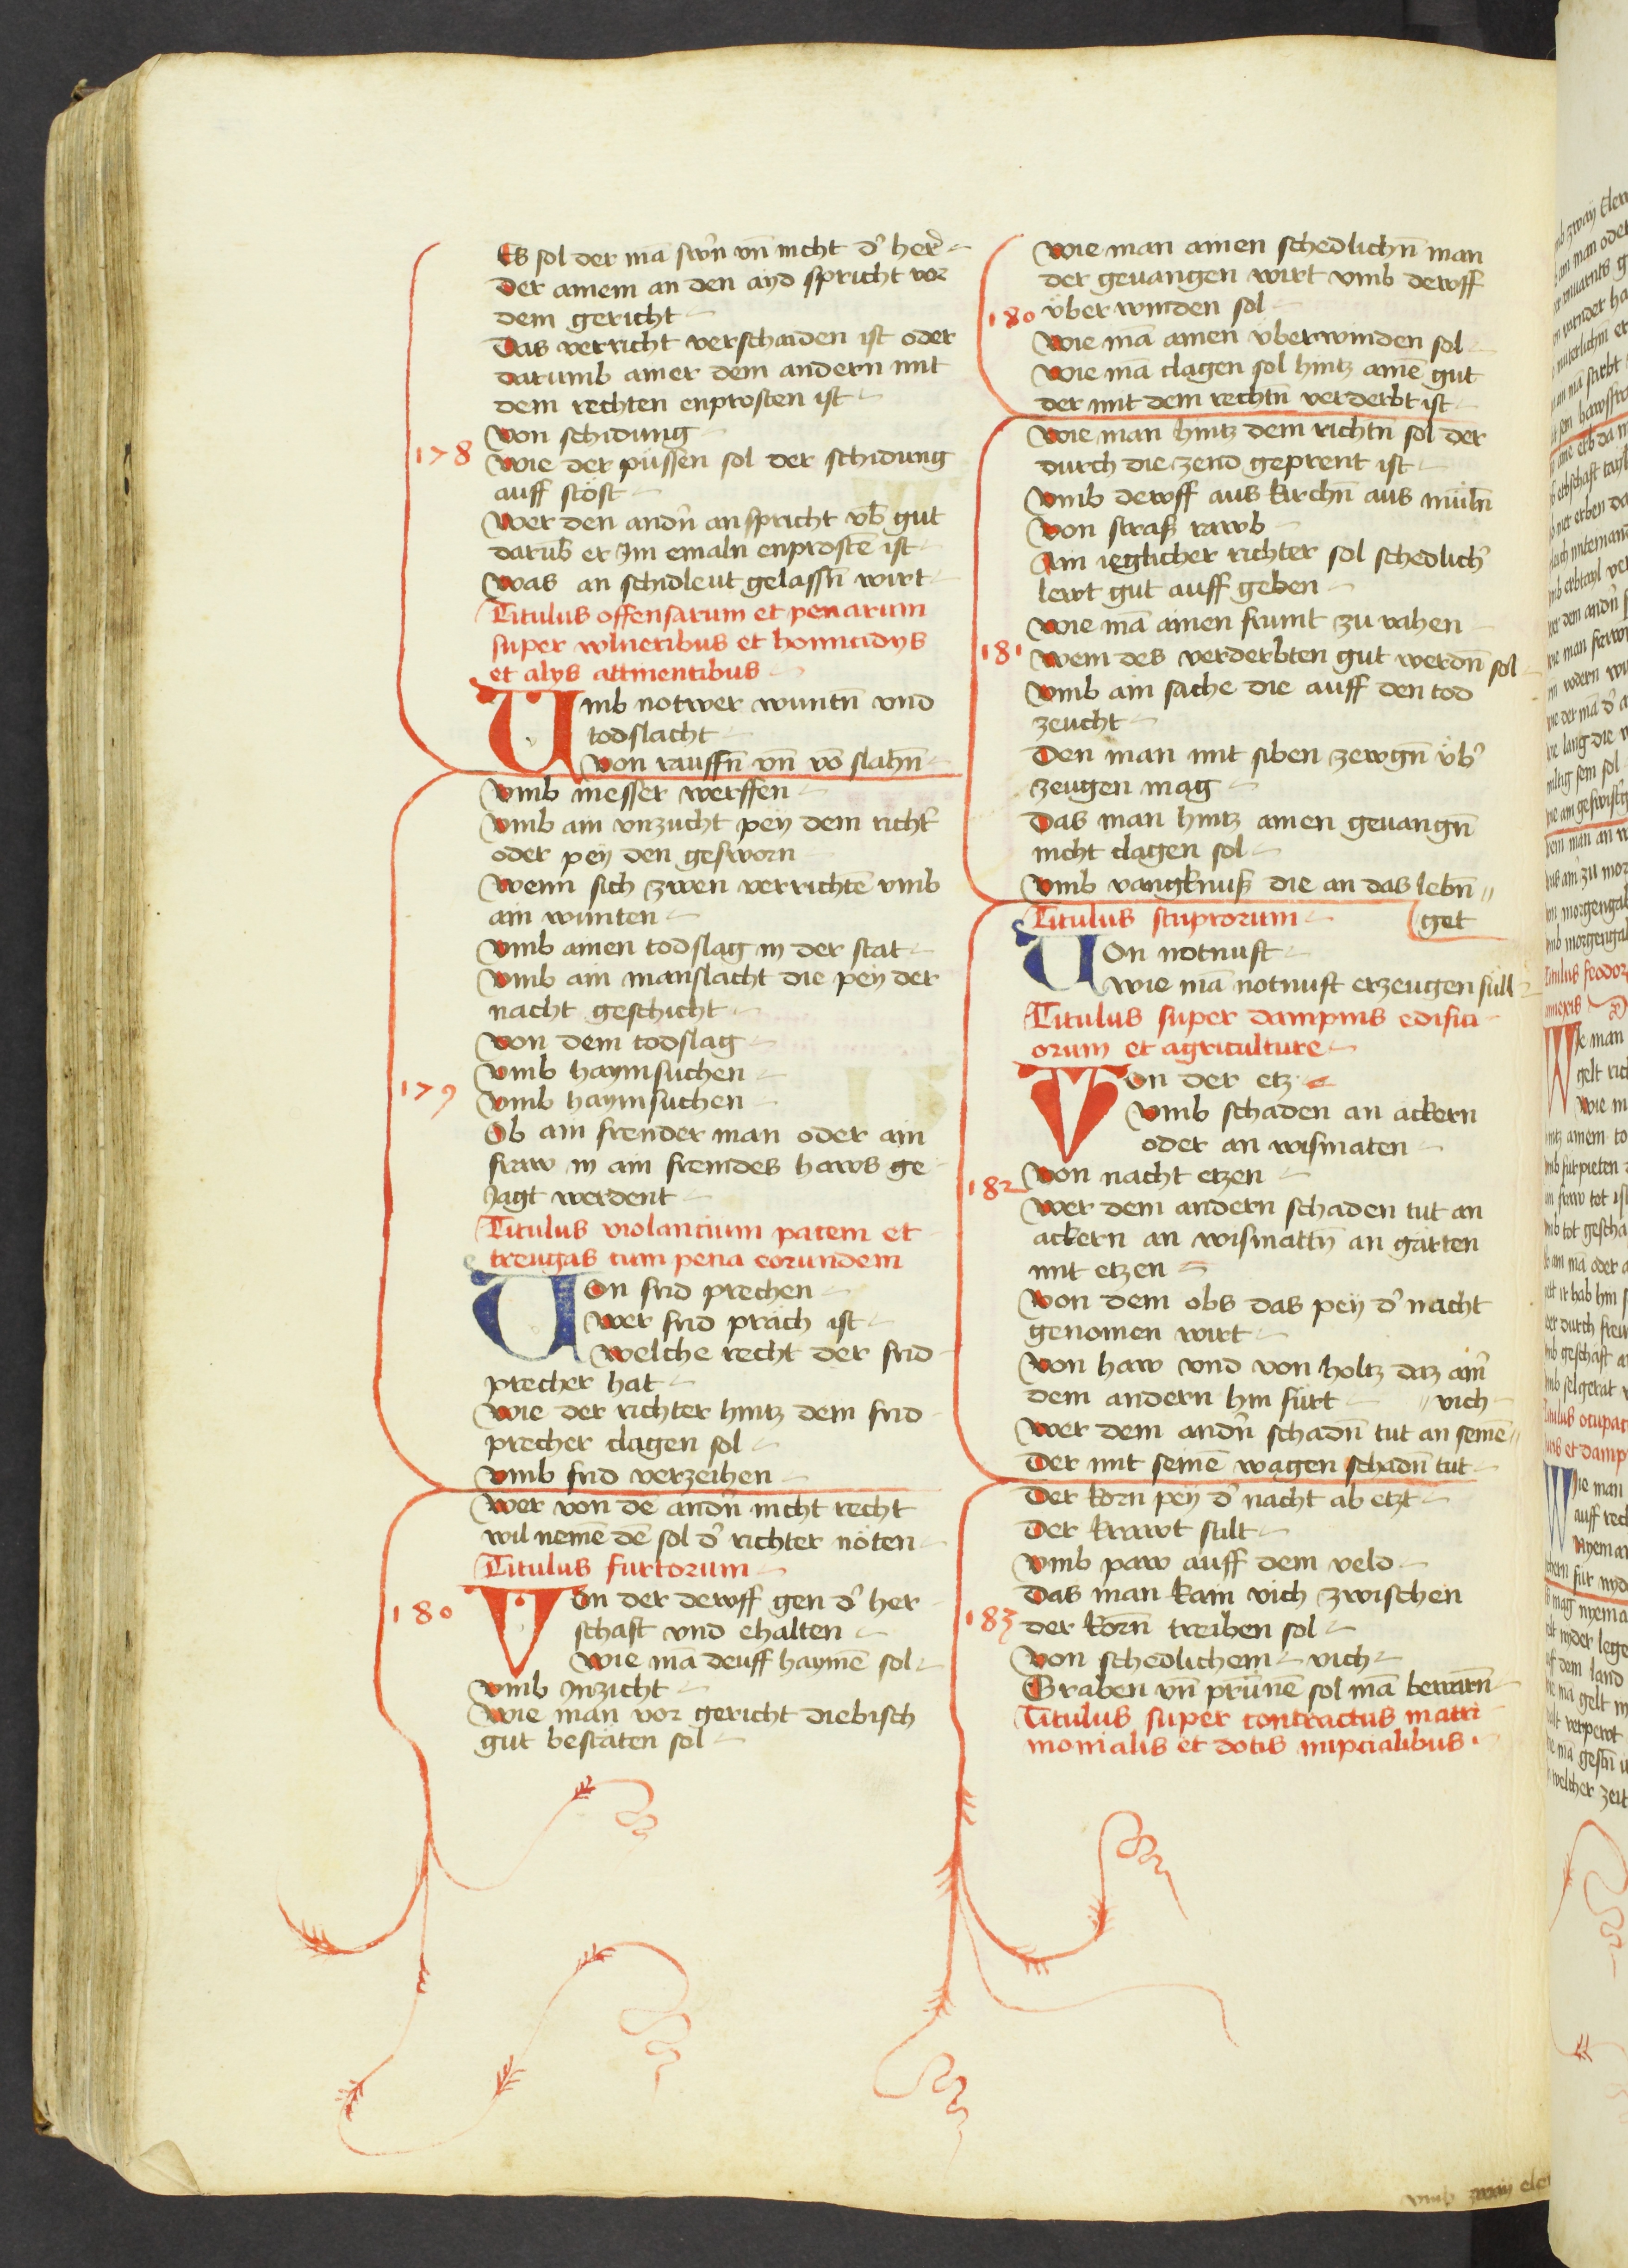 Es sol der mā swn̄ vn̄ nicht d' her'
Der ainem an den ayd spricht vor
dem gericht
Das verricht verschaiden ist oder
darumb ainer dem andern mit
dem rechten enprosten ist
Von schidung
178
Wie der püssen sol der schidung
auff stöst
Wer den andn̄ anspricht vb̄ gut
darub̄ er Im emaln enprostē ist
Was an schidleut gelassn̄ wirt
Titulus offensarum et penarum
super vulneribus et homicidys
et alys attinentibus
Vmb notwer wuntn̄ vnd
todslacht
Von rauffn̄ vn̄ vō slahn̄
Vmb messer werffen
Vmb ain vnzucht pey dem richt'
oder pey den gesworn
Wenn sich zwen verrichtē vmb
ain wunten
Vmb ainen todslag in der stat
Vmb ain manslacht die pey der
nacht geschicht
Von dem todslag
Vmb haymsuchen
179
Vmb haymsuchen
Ob ain frender man oder ain
fraw in ain fremdes haws ge
Jagt werdent
Titulus violancium pacem et
treugas cum pena eorundem
Von frid prechen
Wer frid präch ist
Welche recht der frid
precher hat
Wie der richter hintz dem frid
precher clagen sol
Vmb frid verzeihen
Wer von dē andn̄ nicht recht
wil nemē dē sol d' richter nöten
Titulus furtorum
180
Von der dewff gen d' her
schaft vnd ehalten
Wie mā deuff haymē sol
Vmb Inzicht
Wie man vor gericht diebisch
gut bestäten sol
Wie man ainen schedlichn̄ man
der geuangen wirt vmb dewff
180
über winden sol
Wie mā ainen vberwinden sol
Wie mā clagen sol hintz ainē gut
der mit dem rechtn̄ verderbt ist
Wie man hintz dem richtn̄ sol der
durch die zend geprent ist
Vmb dewff aus kirchn̄ aus müln̄
Von straß rawb
Ain ieglicher richter sol schedlich'
lewt gut auff geben
Wie mā ainen frumt zu vahen
181
Wem des verderbten gut werdn̄ sol
Vmb ain sache die auff den tod
zeucht
Den man mit siben zewgn̄ üb'
zeugen mag
Das man hintz ainen geuangn̄
nicht clagen sol
Vmb vangknuß die an das lebn̄ //
get
Titulus stuprorum
Von notnuft
Wie mā notnuft erzeugen süll
Titulus super dampnis edifici
orum et agriculture
Von der etz
Vmb schaden an äckern
oder an wismaten
182
Von nacht etzen
Wer dem andern schaden tut an
ackern an wismattn̄ an gärten
mit etzen
Von dem obs das pey d' nacht
genomen wirt
Von haw vnd von holtz daz ain'
dem andern hin fürt // vich
Wer dem andn̄ schadn̄ tut an seinē //
Der mit seinē wagen schadn̄ tut
Der korn pey d' nacht ab etzt
Der krawt stilt
Vmb paw auff dem veld
Das man kain vich zwischen
183
der korn̄ treiben sol
Von schedlichem vich
Graben vn̄ prünnē sol mā bewarn̄
Titulus super contractus matri
monialis et dotis nupcialibus.